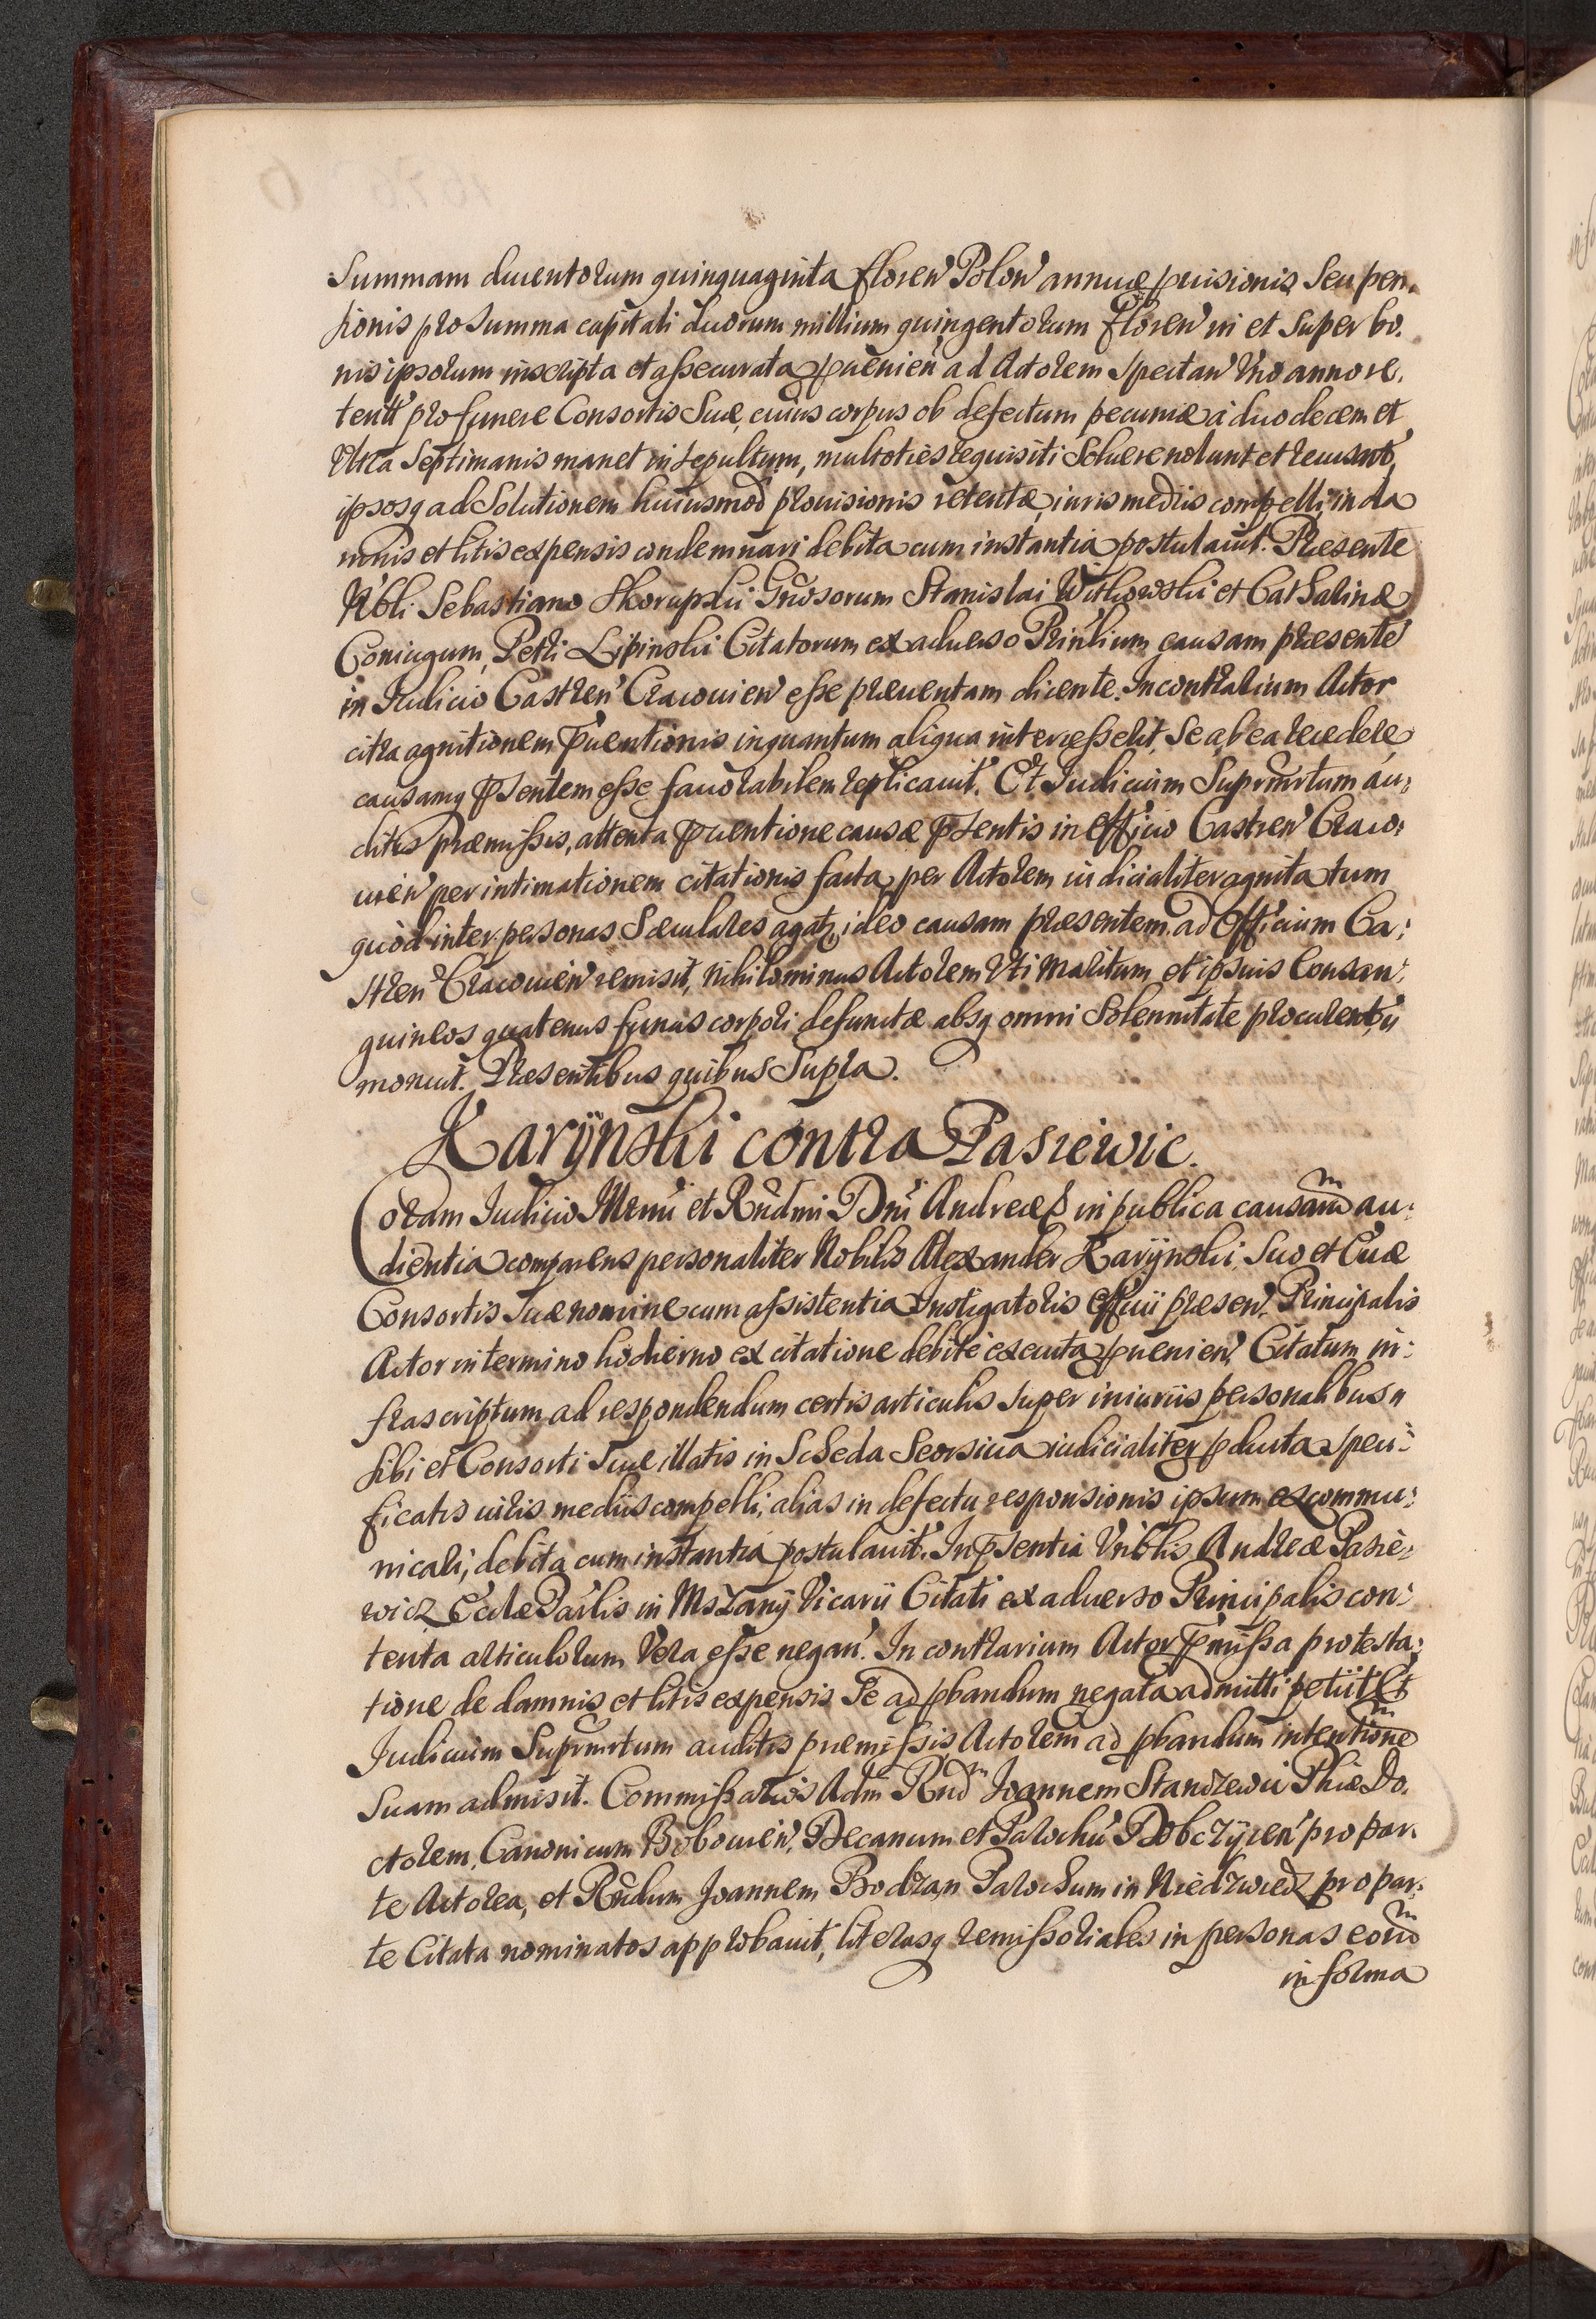 Summam ducentorum quinquaginta floren Polon annuæ puisionis Seu pen,
sionis pro summa capitali duorum millium quingentorum floren in et super bo,
nis ipsorum inscripta et assecurata puenien ad Actorem spectan Vno anno re,
tent pro funere Consortis Suæ, cuius corpus ob defectum pecuniæ à duodecem et
Vltra Septimanis manet insepultum, multoties requisiti Soluere nolunt et recusant,
ipsosq ad Solutionem huiusmod prouisionis retentæ, iuris mediis compelli, in da
mnis et litis expensis condemnari debita cum instantia postulauit. Præsente
Nbli Sebastiano Skorupski Gnosorum Stanislai Witkowski et Catharinæ
Coniugum, Petri Lipinski Citatorum ex aduerso Prinlium causam præsente
in Iudicio Castren Cracouien esse præuentam dicente. In contrarium Actor
citra agnitionem puentionis inquantum aliqua interesserit, Se ab ea recedere,
causamq psentem esse fauorabilem replicauit. Et Iudicium Suprmrtum au:
ditis præmissis, attenta puentione causæ psentis in officio Castren Craco:
uien per intimationem citationis facta, per Actorem iudicialiter agnita tum
quòd inter personas Sæculares agatr, ideo causam præsentem ad Officium Ca:
stren Cracouien remisit, nihilominus Actorem Vti Maritum, et ipsius Consan:
guineos quatenus funus corpori defunctæ absq omni Solennitate procurent,
monuit. Præsentibus quibus Supra.
Karÿnski contra Pasiewic.
Coram Iudicio Illrmi et Rndmi Dni Andreæ in publica causam au:
dientia comparens personaliter Nobilis Alexander Karÿnski, Suo et Euæ
Consortis Suæ nomine cum assistentia Instigatoris officii præsen. Principalis
Actor in termino hodierno ex citatione debite executa puenien, Citatum in:
frascriptum ad respondendum certis articulis super iniuriis personalibus
sibi et Consorti Suæ illatis in Scheda Seorsiua iudicialiter pducta speci:
ficatis iuris mediis compelli, alias in defectu responsionis ipsum excommu:
nicari, debita cum instantia postulauit. In psentia Vnblis Andreæ Pasie:
wicz Ecclæ Parlis in Mszanÿ Vicarii Citati ex aduerso Principalis con:
tenta articulorum Vera esse negan. In contrarium Actor pmissa protesta:
tione de damnis et litis expensis Se ad pbandum negata admitti petiit Et
Iudicium Suprmrtum auditis præmissis, Actorem ad pbandum intentione
suam admisit. Commissarios Adm Rnd Ioannem Standzewic Phiæ Do,
ctorem, Canonicum Bobouien, Decanum et Parochu Dobczÿcen pro par,
te Actorea, et Rndum Ioannem Bodzan Parochum in Niedzwiedz pro par,
te Citata nominatos approbauit, literasq remissoriales in personas eorum
in forma